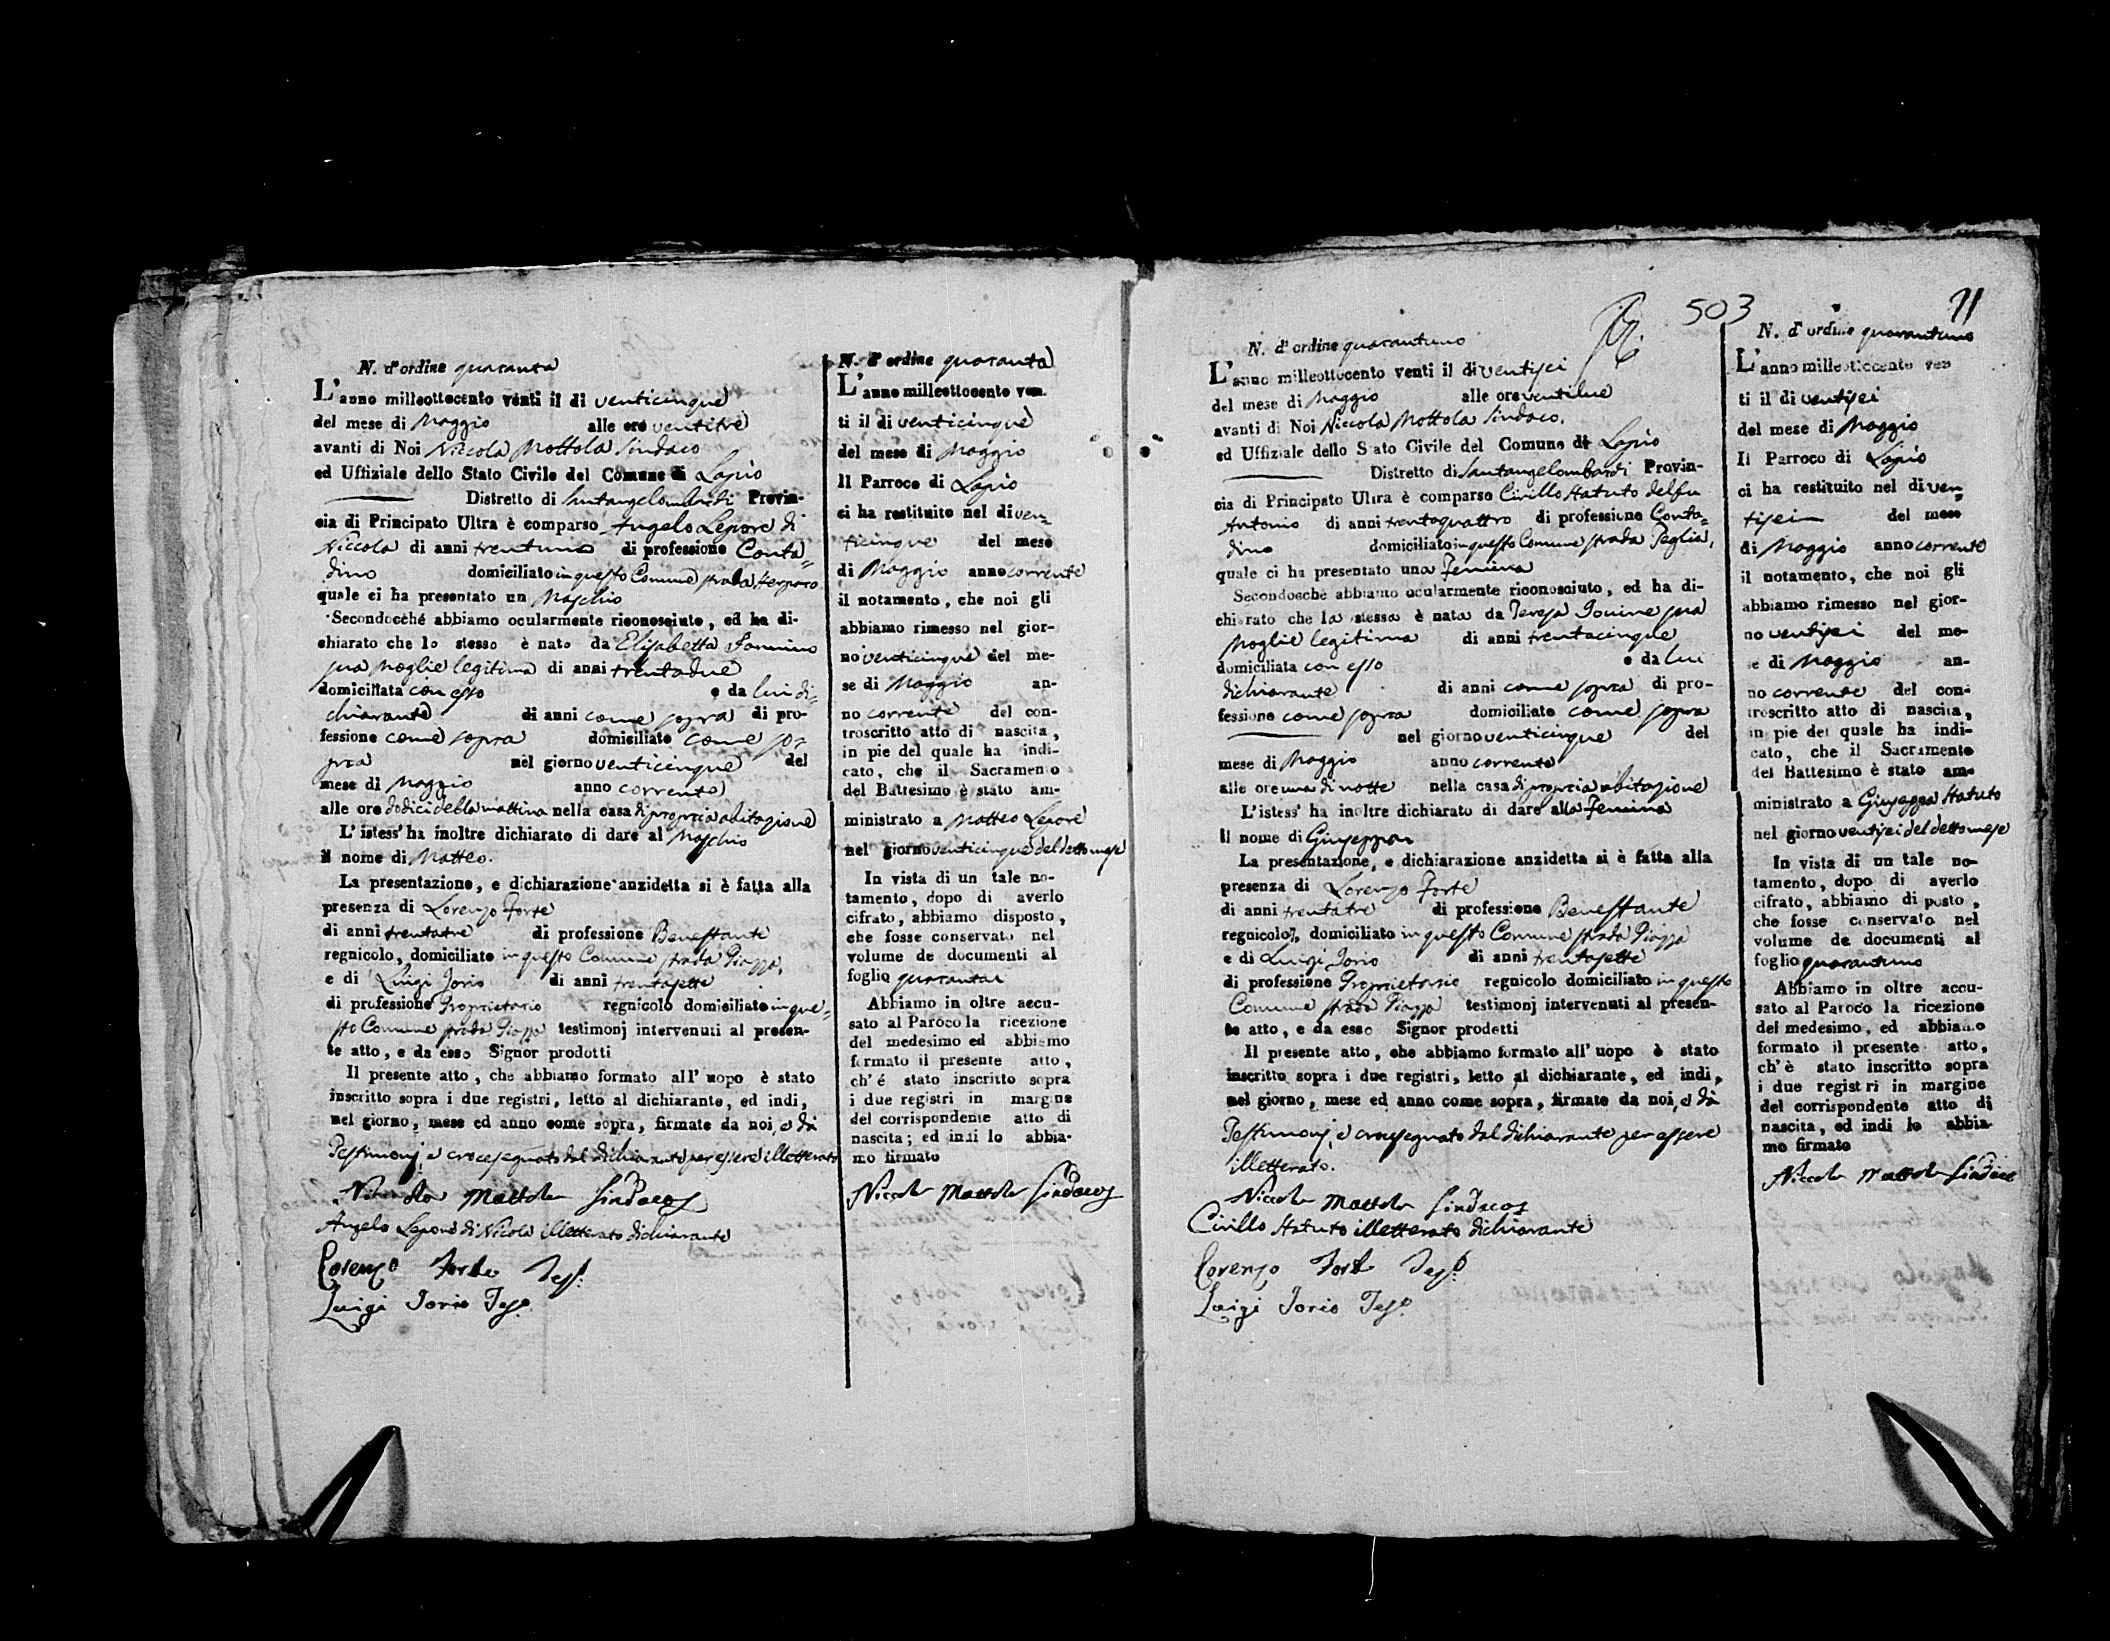 N. d'ordine quaranta
L'anno milleottocento venti il di venticinque
del mese di Maggio alle ore ventitre
avanti di Noi Niccola Mottola Sindaco
ed Uffiziale dello Stato Civile del Comune di Lapio
Distretto di Santangelombardi Provin-
cia di Principato Ultra è comparso Angelo Lepore di
Niccola di anni trentuno di professione Conta=
dino domiciliato in questo Comune strada
quale ci ha presentato un Maschio
Secondocchè abbiamo ocularmente riconosciuto, ed ha di-
chiarato che lo stesso è nato da Elisabetta
sua moglie legitima di anni trentadue
domiciliata con esso e da lui di=
chiarante di anni come sopra di pro-
fessione come sopra domiciliato come so=
pra nel giorno venticinque del
mese di Maggio anno corrente
alle ore dodici della mattina nella casa di propria abitazione
L' istess' ha inoltre dichiarato di dare al Maschio
il nome di Matteo.
La presentazione, e dichiarazione anzidetta si è fatta alla
presenza di Lorenzo Forte
di anni trentatre di professione Benestante
regnicolo, domiciliato in questo Comune strada Piazza,
e di Luigi Jorio di anni trentasette
di professione Proprietario regnicolo domiciliato in que=
sto Comune strada Piazza testimonj intervenuti al presen-
te atto, e da esso Signor prodotti
Il presente atto, che abbiamo formato all' uopo è stato
inscritto sopra i due registri, letto al dichiarante, ed indi,
nel giorno, mese ed anno come sopra, firmato da noi, e da
Testimonj, e crocesegnato dal dichiarante per essere illetterato
Niccola Mottola Sindaco
Angelo Lepore di Nicola illetterato dichiarante
Lorenzo Forte Tes.º
Luigi Jorio Tes.º
N. d' ordine quaranta
L'anno milleottocento ven-
ti il di venticinque
del mese di Maggio
Il Parroco di Lapio
ci ha restituito nel di ven=
ticinque del mese
di Maggio anno corrente
il notamento, che noi gli
abbiamo rimesso nel gior-
no venticinque del me-
se di Maggio an-
no corrente del con-
troscritto atto di nascita,
in pie del quale ha indi-
cato, che il Sacramento
del Battesimo è stato am-
ministrato a Matteo Lepore
nel giorno venticinque del detto mese
In vista di un tale no-
tamento, dopo di averlo
cifrato, abbiamo disposto,
che fosse conservato nel
volume de documenti al
foglio quaranta
Abbiamo in oltre accu-
sato al Paroco la ricezione
del medesimo ed abbiamo
formato il presente atto,
ch' é stato inscritto sopra
i due registri in margine
del corrispondente atto di
nascita; ed indi lo abbia-
mo firmato
Niccola Mottola Sindaco
503
71
N. d' ordine quarantuno
L'anno milleottocento venti il di ventisei
del mese di Maggio alle ore ventidue
avanti di Noi Niccola Mottola Sindaco.
ed Uffiziale dello Stato Civile del Comune di Lapio
Distretto di Santangelombardi Provin-
cia di Principato Ultra è comparso Cirillo Statuto del fu
Antonio di anni trentaquattro di professione Conta=
dino domiciliato in questo Comune strada Paglia,
quale ci ha presentato una Femina
Secondoschè abbiamo ocularmente riconosciuto, ed ha di-
chiarato che la stessa è nata da Teresa Jonine sua
moglie legitima di anni trentacinque
domiciliata con esso e da lui
dichiarante di anni come sopra di pro-
fessione come sopra domiciliato come sopra
nel giorno venticinque del
mese di Maggio anno corrente
alle ore una di notte nella casa di propria abitazione
L'istess' ha inoltre dichiarato di dare alla Femina
il nome di Giuseppa
La presentazione, e dichiarazione anzidetta si è fatta alla
presenza di Lorenzo Forte
di anni trentatre di professione Benestante
regnicolo, domiciliato in questo Comune strada Piazza
e di Luigi Jorio di anni trentasette
di professione Proprietario regnicolo domiciliato in questo
Comune strada Piazza testimonj intervenuti al presen-
te atto, e da esso Signor prodotti
Il presente atto, che abbiamo formato all' uopo è stato
inscritto sopra i due registri, letto al dichiarante, ed indi,
nel giorno, mese ed anno come sopra, firmato da noi, e da
Testimonj, e crocesegnato dal dichiarante per essere
illetterato.
Niccola Mottola Sindaco
Cirillo Statuto illetterato dichiarante
Lorenzo Forte Tes.º
Luigi Jorio Tes.º
N. d' ordine quarantuno
L'anno milleottocento ven
ti il di ventisei
del mese di Maggio
Il Parroco di Lapio
ci ha restituito nel di ven=
tisei del mese
di Maggio anno corrente
il notamento, che noi gli
abbiamo rimesso nel gior-
no ventisei del me-
se di Maggio an-
no corrente del con-
troscritto atto di nascita,
in pie del quale ha indi-
cato, che il Sacramento
del Battesimo è stato am-
ministrato a Giuseppa Statuto
nel giorno ventisei del detto mese
In vista di un tale no-
tamento, dopo di averlo
cifrato, abbiamo disposto,
che fosse conservato nel
volume de documenti al
foglio quarantuno
Abbiamo in oltre accu-
sato al Paroco la ricezione
del medesimo, ed abbiamo
formato il presente atto,
ch' è stato inscritto sopra
i due registri in margine
del corrispondente atto di
nascita, ed indi lo abbia-
mo firmato
Niccola Mottola Sindaco